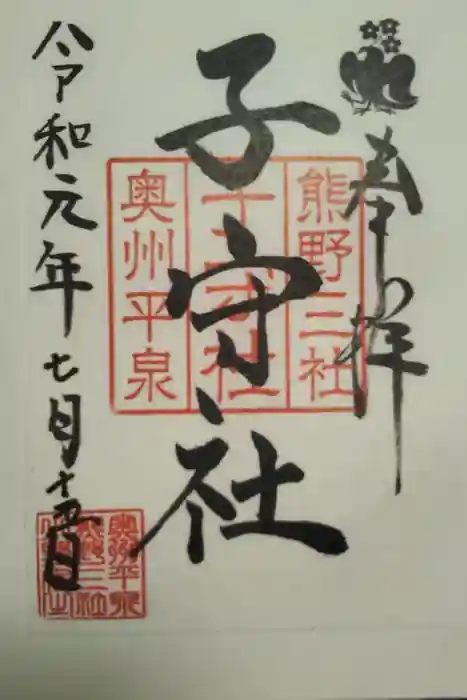 奉拝
熊野三社
子守社
奥州平泉
令和元年七月十五日
奥州平泉
熊野三社